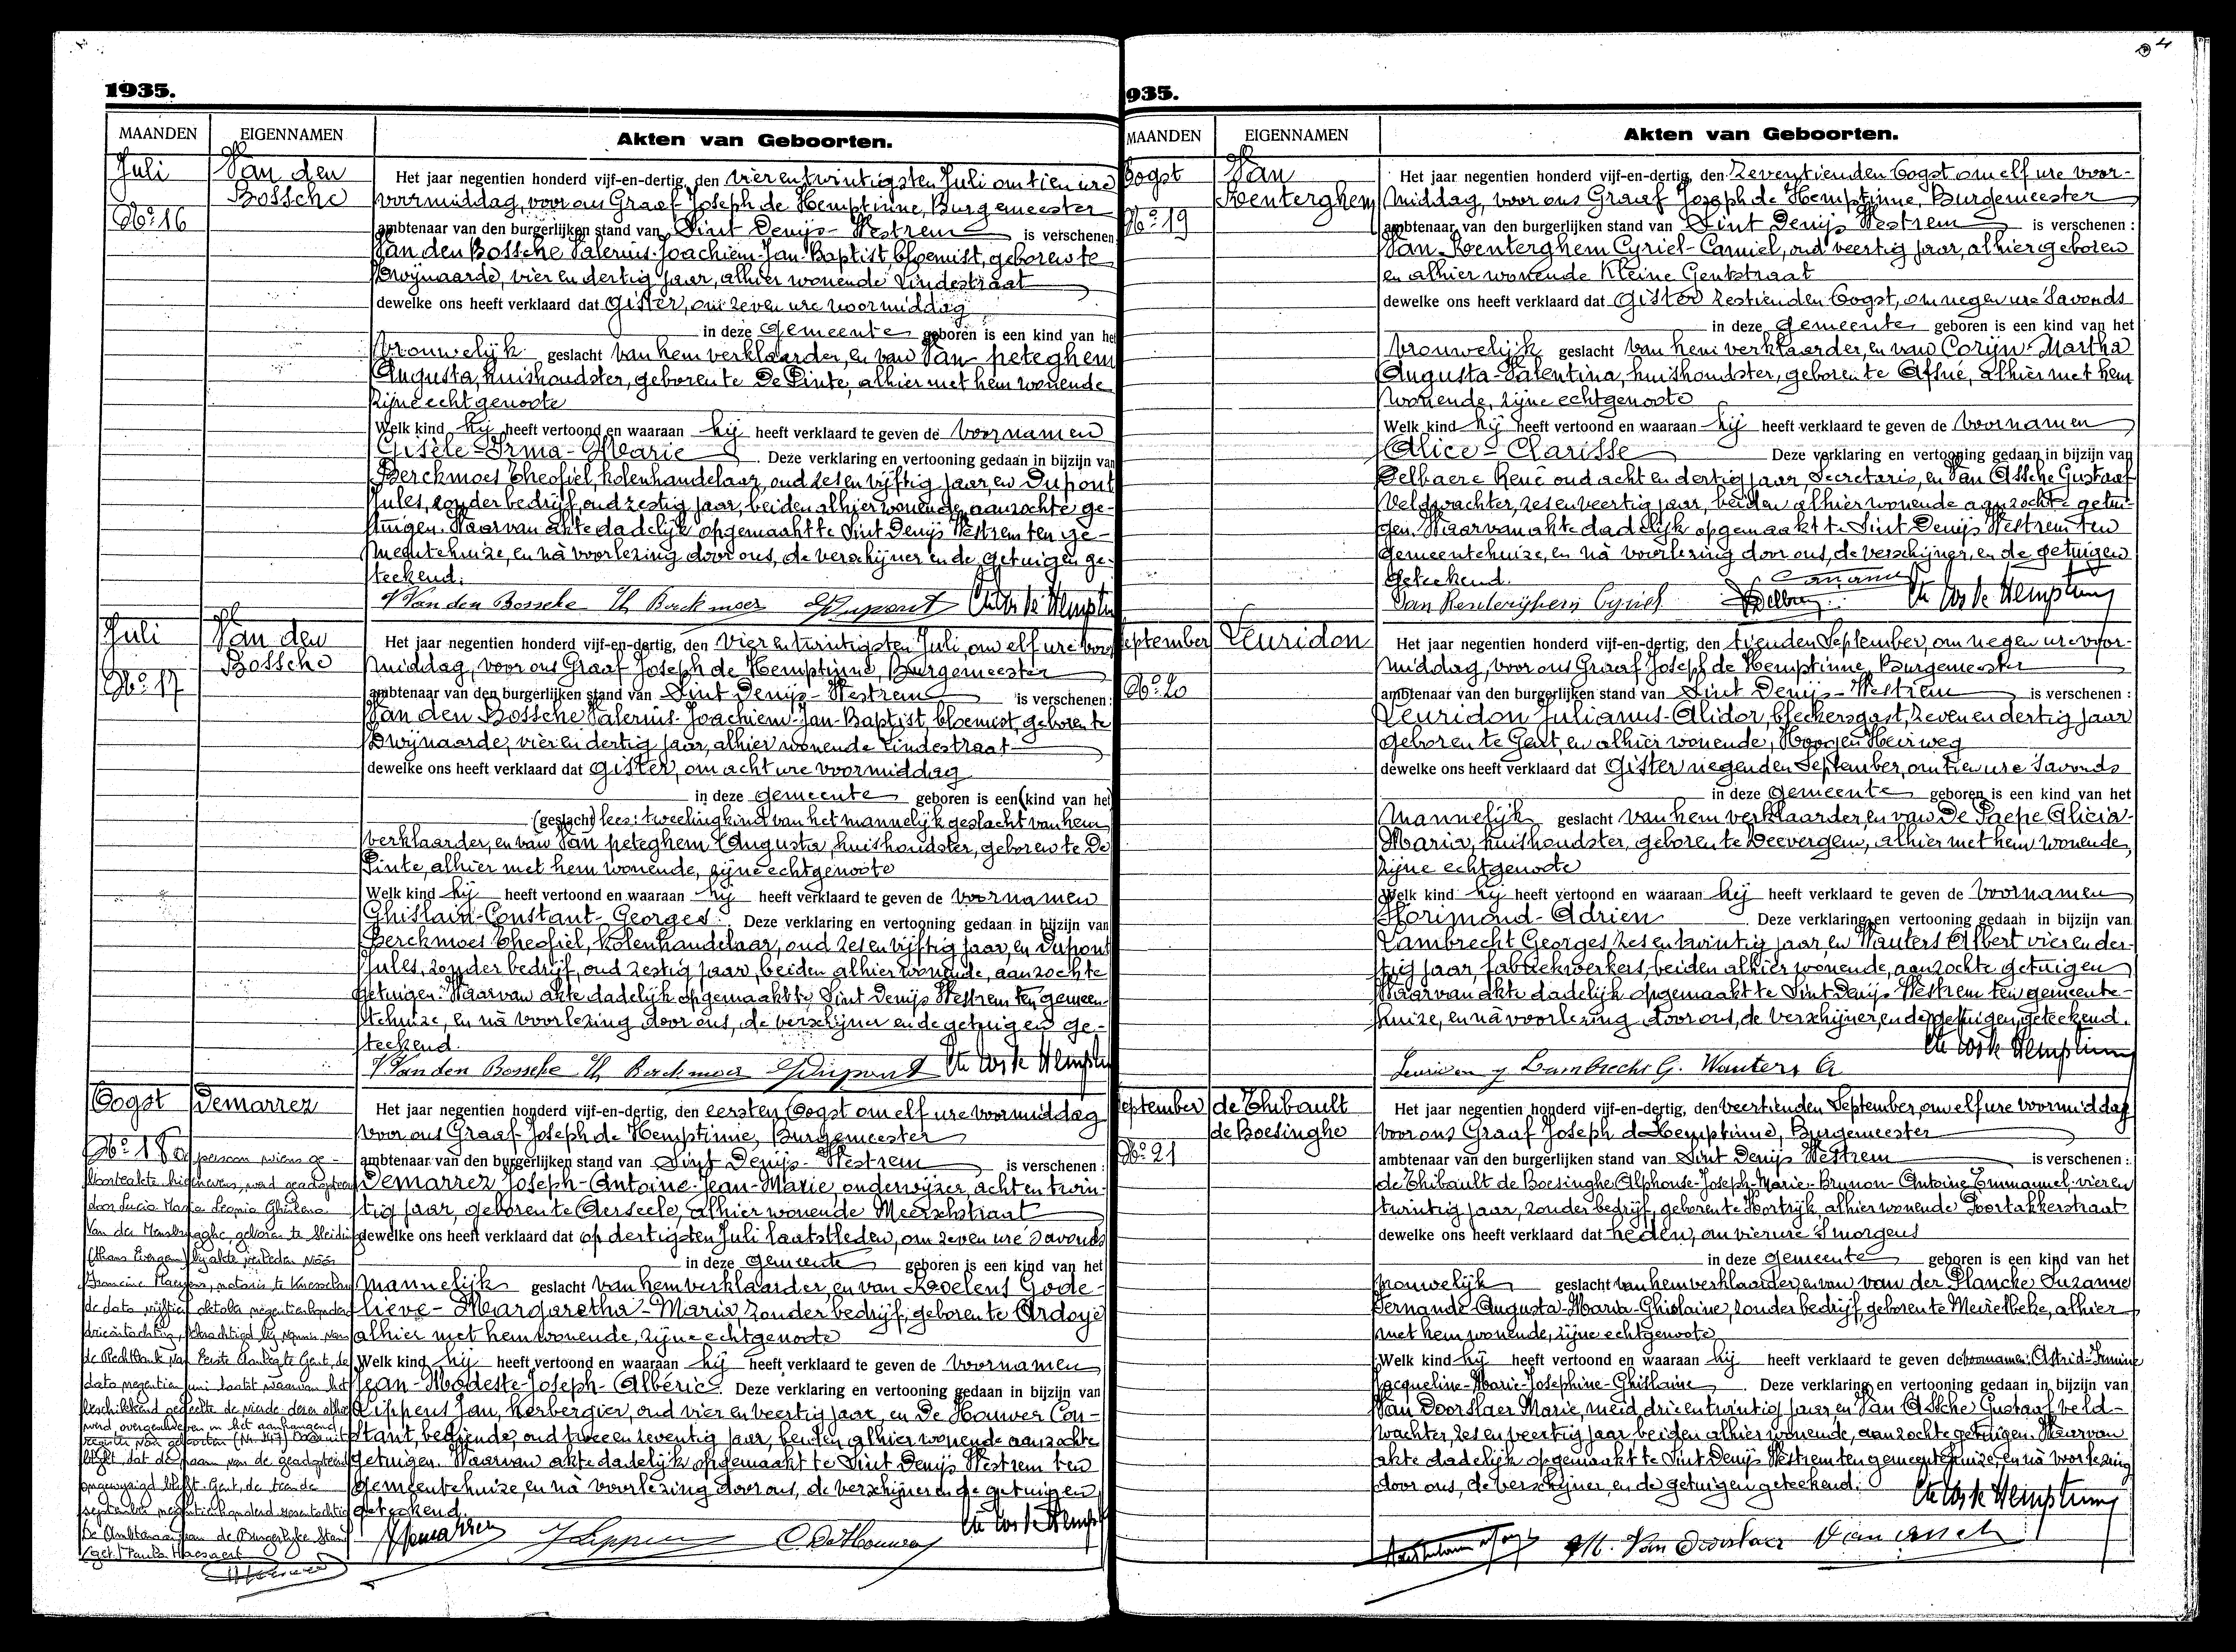 1935.
MAANDEN EIGENNAMEN Akten van Geboorten.
Juli
Van den
Bossche
No. 16
Het jaar negentien honderd vijf-en-dertig, den vier en twintigsten Juli om tien ure
voormiddag, voor ons Graaf Joseph de Hemptinne, Burgemeester
ambtenaar van den burgerlijken stand van Sint Denijs-Westrem is verschenen
Van den Bossche Valerius-Joachiem-Jan-Baptist, bloemist, geboren te
Zwijnaarde, vier en dertig jaar, alhier wonende Lindestraat
dewelke ons heeft verklaard dat gister, om zeven ure voormiddag
in deze gemeente geboren is een kind van het
vrouwelijk geslacht van hem verklaarder, en van Van peteghem
Augusta, huishoudster, geboren te De Pinte, alhier met hem wonende
zijne echtgenoote
Welk kind hij heeft vertoond en waaraan hij heeft verklaard te geven de voornamen
Gisèle-Irma-Marie Deze verklaring en vertooning gedaan in bijzijn van
Berckmoes Theofiel, kolenhandelaar, oud zes en vijftig jaar, en Dupont
Jules, zonder bedrijf, oud zestig jaar, beiden alhier wonende, aanzochte ge-
tuigen. Waarvan akte dadelijk opgemaakt te Sint Denijs Westrem ten ge-
meentehuize, en nà voorlezing door ons, de verschijner en de getuigen ge-
teekend.
V Van den Bossche Th Berckmoes J Dupont
Juli
Van den
Bossche
No. 17
Het jaar negentien honderd vijf-en-dertig, den vier en twintigsten Juli, om elf ure voor
middag, voor ons Graaf Joseph de Hemptinne, Burgemeester
ambtenaar van den burgerlijken stand van Sint Denijs-Westrem is verschenen:
Van den Bossche Valerius-Joachiem-Jan-Baptist, bloemist, geboren te
Zwijnaarde, vier en dertig jaar, alhier wonende Lindestraat
dewelke ons heeft verklaard dat gister, om acht ure voormiddag
in deze gemeente geboren is een (kind van het
(geslacht) lees: tweelingkind van het mannelijk geslacht van hem
verklaarder, en van Van peteghem Augusta, huishoudster, geboren te De
Pinte, alhier met hem wonende, zijne echtgenoote
Welk kind hij heeft vertoond en waaraan hij heeft verklaard te geven de voornamen
Ghislain-Constant-Georges. Deze verklaring en vertooning gedaan in bijzijn van
Berckmoes Theofiel, kolenhandelaar, oud zes en vijftig jaar, en Dupont
Jules, zonder bedrijf, oud zestig jaar, beiden alhier wonende, aanzochte
getuigen. Waarvan akte dadelijk opgemaakt te Sint Denijs Westrem ten gemeen-
tehuize, en nà voorlezing door ons, de verschijner en de getuigen ge-
teekend.
V Van den Bossche Th Berckmoes J Dupont
Oogst
Demarrez
No. 18
De persoon wiens ge-
boorteakte hiernevens, werd geadopteerd
door Lucia Maria Leonia Ghislena
Van der Menstraaghe, geboren te Sleidinge
(thans Evergem) bij akte verleden vóór
Francine Maeyens, notaris te Knesselare
de dato vijftien oktober negentienhonderd
drieëntachtig, bekrachtigd bij vonnis van
de Rechtbank van Eerste Aanleg te Gent, de
dato negentien juni laatst waarvan het
beschikkend gedeelte de vierde dezer alhier
werd overgeschreven in het aanhangend
register van geboorten (Nr. 147) Daaruit
blijkt, dat de naam van de geadopteerde
ongewijzigd blijft. Gent, de tiende
september negentienhonderd vierentachtig
De Ambtenaar van de Burgerlijke Stand
(get.) Paula Haesaert
Het jaar negentien honderd vijf-en-dertig, den eersten Oogst om elf ure voormiddag
voor ons Graaf Joseph de Hemptinne, Burgemeester
ambtenaar van den burgerlijken stand van Sint Denijs-Westrem is verschenen:
Demarrez Joseph-Antoine-Jean-Marie, onderwijzer, acht en twin-
tig jaar, geboren te Aerseele, alhier wonende Meerschstraat
dewelke ons heeft verklaard dat op dertigsten Juli laatstleden, om zeven ure s'avonds
in deze gemeente geboren is een kind van het
mannelijk geslacht van hem verklaarder en van Roelens Gode-
lieve-Margaretha-Maria, zonder bedrijf, geboren te Ardoye
alhier met hem wonende, zijne echtgenoote
Welk kind hij heeft vertoond en waaraan hij heeft verklaard te geven de voornamen
Jean-Modeste-Joseph-Albéric. Deze verklaring en vertooning gedaan in bijzijn van
Lippens Jan, herbergier, oud vier en veertig jaar, en De Houwer Con-
stant, bediende, oud twee en zeventig jaar, beiden alhier wonende aanzochte
getuigen. Waarvan akte dadelijk opgemaakt te Sint Denijs Westrem ten
gemeentehuize, en nà voorlezing door ons, de verschijner en de getuigen
geteekend.
J Demarrez J Lippens C. De Houwer
935.
MAANDEN EIGENNAMEN Akten van Geboorten.
Oogst
Van
Renterghem
No. 19
Het jaar negentien honderd vijf-en-dertig, den Zeventienden Oogst om elf ure voor-
middag, voor ons Graaf Joseph de Hemptinne, Burgemeester
ambtenaar van den burgerlijken stand van Sint Denijs Westrem is verschenen:
Van Renterghem Cyriel-Camiel, oud veertig jaar, alhier geboren
en alhier wonende Kleine Gentstraat
dewelke ons heeft verklaard dat gister zestienden Oogst, om negen ure s'avonds
in deze gemeente geboren is een kind van het
vrouwelijk geslacht van hem verklaarder, en van Corijn Martha
Augusta-Valentina, huishoudster, geboren te Afsné, alhier met hem
wonende, zijne echtgenoote
Welk kind hij heeft vertoond en waaraan hij heeft verklaard te geven de voornamen
Alice-Clarisse Deze verklaring en vertooning gedaan in bijzijn van
Delbaere René oud acht en dertig jaar, Secretaris, en Van Assche Gustaaf
Veldwachter, zes en veertig jaar, beiden alhier wonende aanzochte getui-
gen. Waarvan akte dadelijk opgemaakt te Sint Denijs Westrem ten
gemeentehuize, en nà voorlezing door ons, de verschijner, en de getuigen
geteekend.
Van Renterghem Cyriel
September
Leuridon
No. 20
Het jaar negentien honderd vijf-en-dertig, den tienden September, om negen ure voor-
middag, voor ons Graaf Joseph de Hemptinne, Burgemeester
ambtenaar van den burgerlijken stand van Sint Denijs-Westrem is verschenen:
Leuridon Julianus-Alidor, bleekersgast, zeven en dertig jaar
geboren te Gent, en alhier wonende, Hoogen Heirweg
dewelke ons heeft verklaard dat gister negenden September, om tien ure s'avonds
in deze gemeente geboren is een kind van het
mannelijk geslacht van hem verklaarder, en van De Paepe Alicia-
Maria, huishoudster, geboren te Zevergem, alhier met hem wonende,
zijne echtgenoote
Welk kind hij heeft vertoond en waaraan hij heeft verklaard te geven de voornamen
Florimond-Adrien Deze verklaring en vertooning gedaan in bijzijn van
Lambrecht Georges zes en twintig jaar en Wauters Albert vier en der-
tig jaar, fabriekwerkers, beiden alhier wonende, aanzochte getuigen
Waarvan akte dadelijk opgemaakt te Sint Denijs Westrem ten gemeente-
huize, en nà voorlezing door ons, de verschijner, en de getuigen, geteekend.
Leuridon J Lambrecht G. Wauters A
September
de Thibault
de Boesinghe
No. 21
Het jaar negentien honderd vijf-en-dertig, den veertienden September, om elf ure voormiddag
voor ons Graaf Joseph d Hemptinne, Burgemeester
ambtenaar van den burgerlijken stand van Sint Denijs Westrem is verschenen:
de Thibault de Boesinghe Alphonse-Joseph-Marie-Brunon-Antoine Emmanuel, vier en
twintig jaar, zonder bedrijf, geboren te Kortrijk, alhier wonende Poortakkerstraat
dewelke ons heeft verklaard dat heden, om vier ure s'morgens
in deze gemeente geboren is een kind van het
vrouwelijk geslacht van hem verklaarder, en van van der Plancke Suzanne
Fernande-Augusta-Maria-Ghislaine, zonder bedrijf, geboren te Meirelbeke, alhier
met hem wonende, zijne echtgenoote
Welk kind hij heeft vertoond en waaraan hij heeft verklaard te geven de voornamen: Astrid-Irmine
Jacqueline-Marie-Josephine-Ghislaine. Deze verklaring en vertooning gedaan in bijzijn van
Van Doorslaer Marie, meid, drie en twintig jaar, en Van Assche Gustaaf veld-
wachter, zes en veertig jaar beiden alhier wonende, aanzochte getuigen. Waarvan
akte dadelijk opgemaakt te Sint Denijs Westrem ten gemeentehuize, en nà voorlezing
door ons, de verschijner, en de getuigen geteekend.
M. Van Doorslaer Van Assche